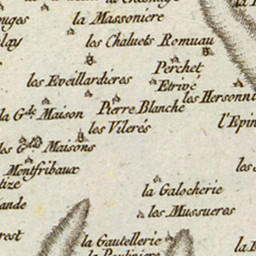 la Massoniere
les Chaluets Romuau
Perchet
les Eveillardieres
Etrivé
les Hersonni
la G.de Maison
Pierre Blanche
l'Epin
les Vilerés
les G.des Maisons
Montfribaux
la Galocherie
les Musueres
la Gautellerie